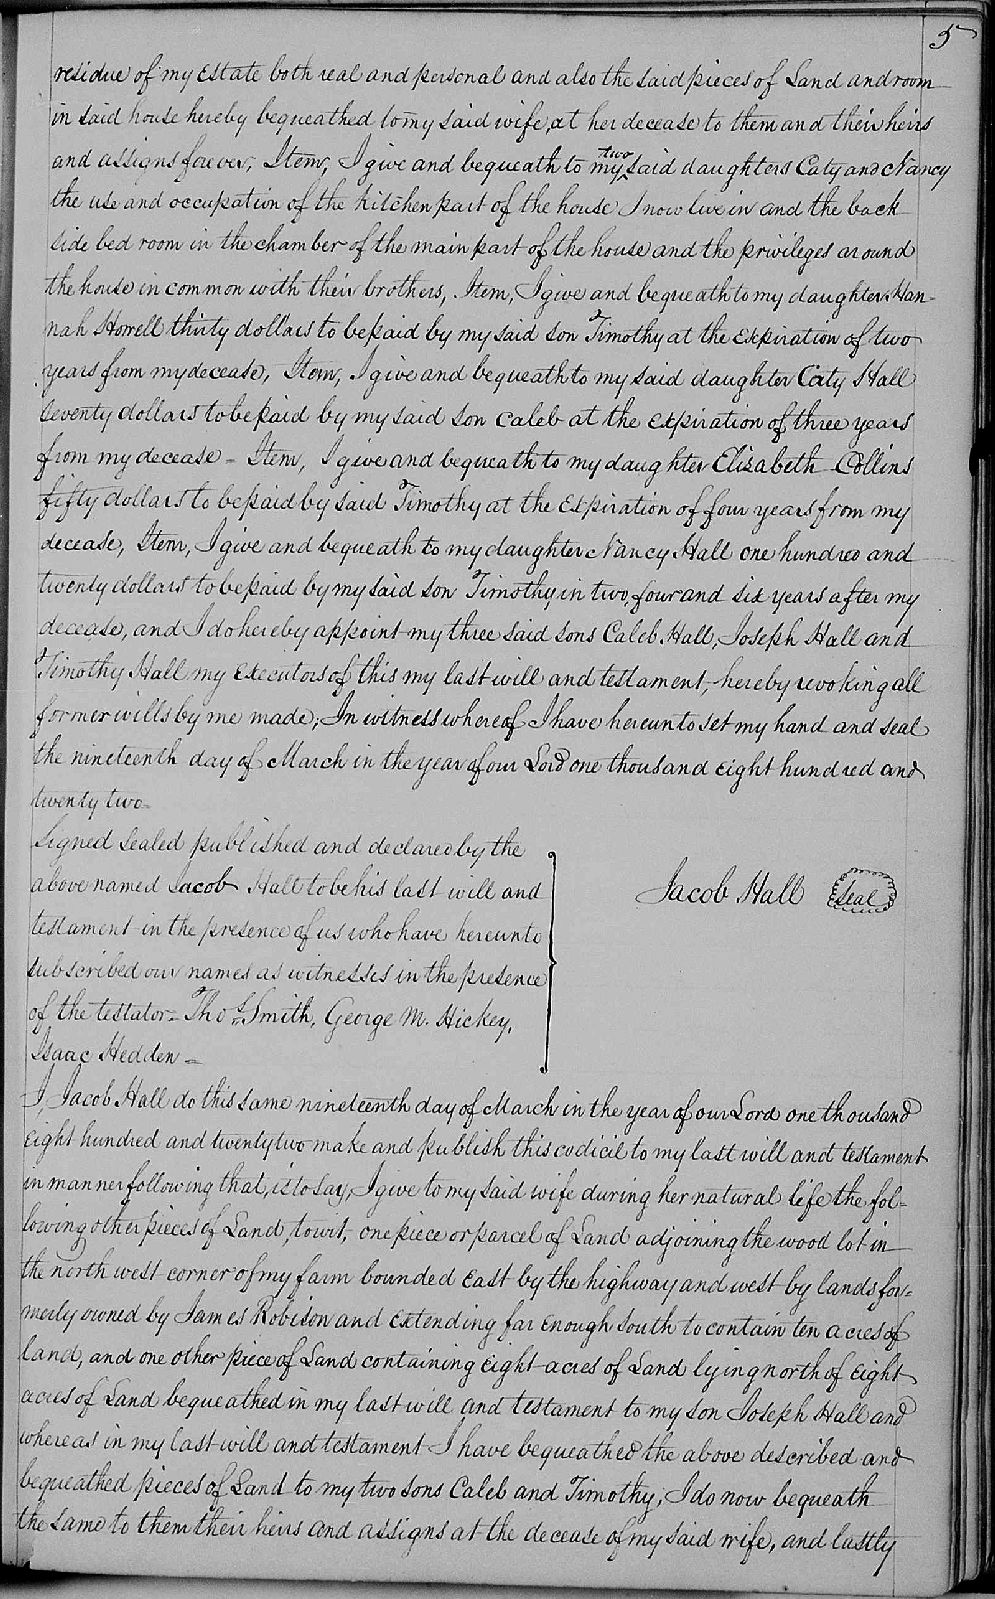 5
residue of my Estate both real and personal and also the said pieces of Land and room
in said house hereby bequeathed to my said wife, at her decease to them and their heirs
and assigns forever, Item, I give and bequeath to my two said daughters Caty and Nancy
the use and occupation of the kitchen part of the house I now live in and the back
side bed room in the chamber of the main part of the house and the privileges around
the house in common with their brothers, Item, I give and bequeath to my daughter Han-
nah Horrell thirty dollars to be paid by my said son Timothy at the Expiration of two
years from my decease, Item, I give and bequeath to my said daughter Caty Hall
seventy dollars to be paid by my said son Caleb at the expiration of three years
from my decease - Item, I give and bequeath to my daughter Elizabeth Collins
fifty dollars to be paid by said Timothy at the Expiration of four years from my
decease, Item, I give and bequeath to my daughter Nancy Hall one hundred and
twenty dollars to be paid by my said son Timothy in two, four and six years after my
decease, and I do hereby appoint my three said sons Caleb Hall, Joseph Hall and
Timothy Hall my Executors of this my last will and testament, hereby revoking all
former wills by me made; In witness whereof I have hereunto set my hand and seal
the nineteenth day of March in the year of our Lord one thousand Eight hundred and
twenty two-
Signed sealed published and declared by the
above named Jacob Hall to be his last will and
testament in the presence of us who have hereunto
subscribed our names as witnesses in the presence
of the testator - Thos Smith, George M. Hickey,
Isaac Hedden -
Jacob Hall seal
I, Jacob Hall do this same nineteenth day of March in the year of our Lord one thousand
Eight hundred and twenty two make and publish this codicil to my last will and testament
in manner following that, is to say, I give to my said wife during her natural life the fol-
lowing other pieces of Land, to wit, one piece or parcel of Land adjoining the wood lot in
the north west corner of my farm bounded East by the highway and west by lands for-
merly owned by James Robison and Extending far Enough South to contain ten acres of
land, and one other piece of Land containing Eight acres of Land lying north of Eight
acres of Land bequeathed in my last will and testament to my son Joseph Hall and
whereas in my last will and testament I have bequeathed the above described and
bequeathed pieces of Land to my two sons Caleb and Timothy, I do now bequeath
the same to them their heirs and assigns at the decease of my said wife, and lastly